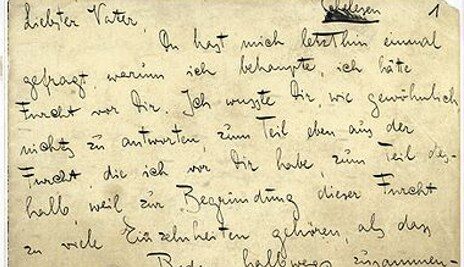 1
Liebster Vater,
Du hast mich letzthin einmal
gefragt, warum ich behaupte, ich hätte
Furcht vor Dir. Ich wusste Dir, wie gewöhnlich,
nichts zu antworten, zum Teil eben aus der
Furcht, die ich vor Dir habe, zum Teil des-
halb, weil zur Begründung dieser Furcht
zu viele Einzelnheiten gehören, als dass
Reden halbwegs zusammen-